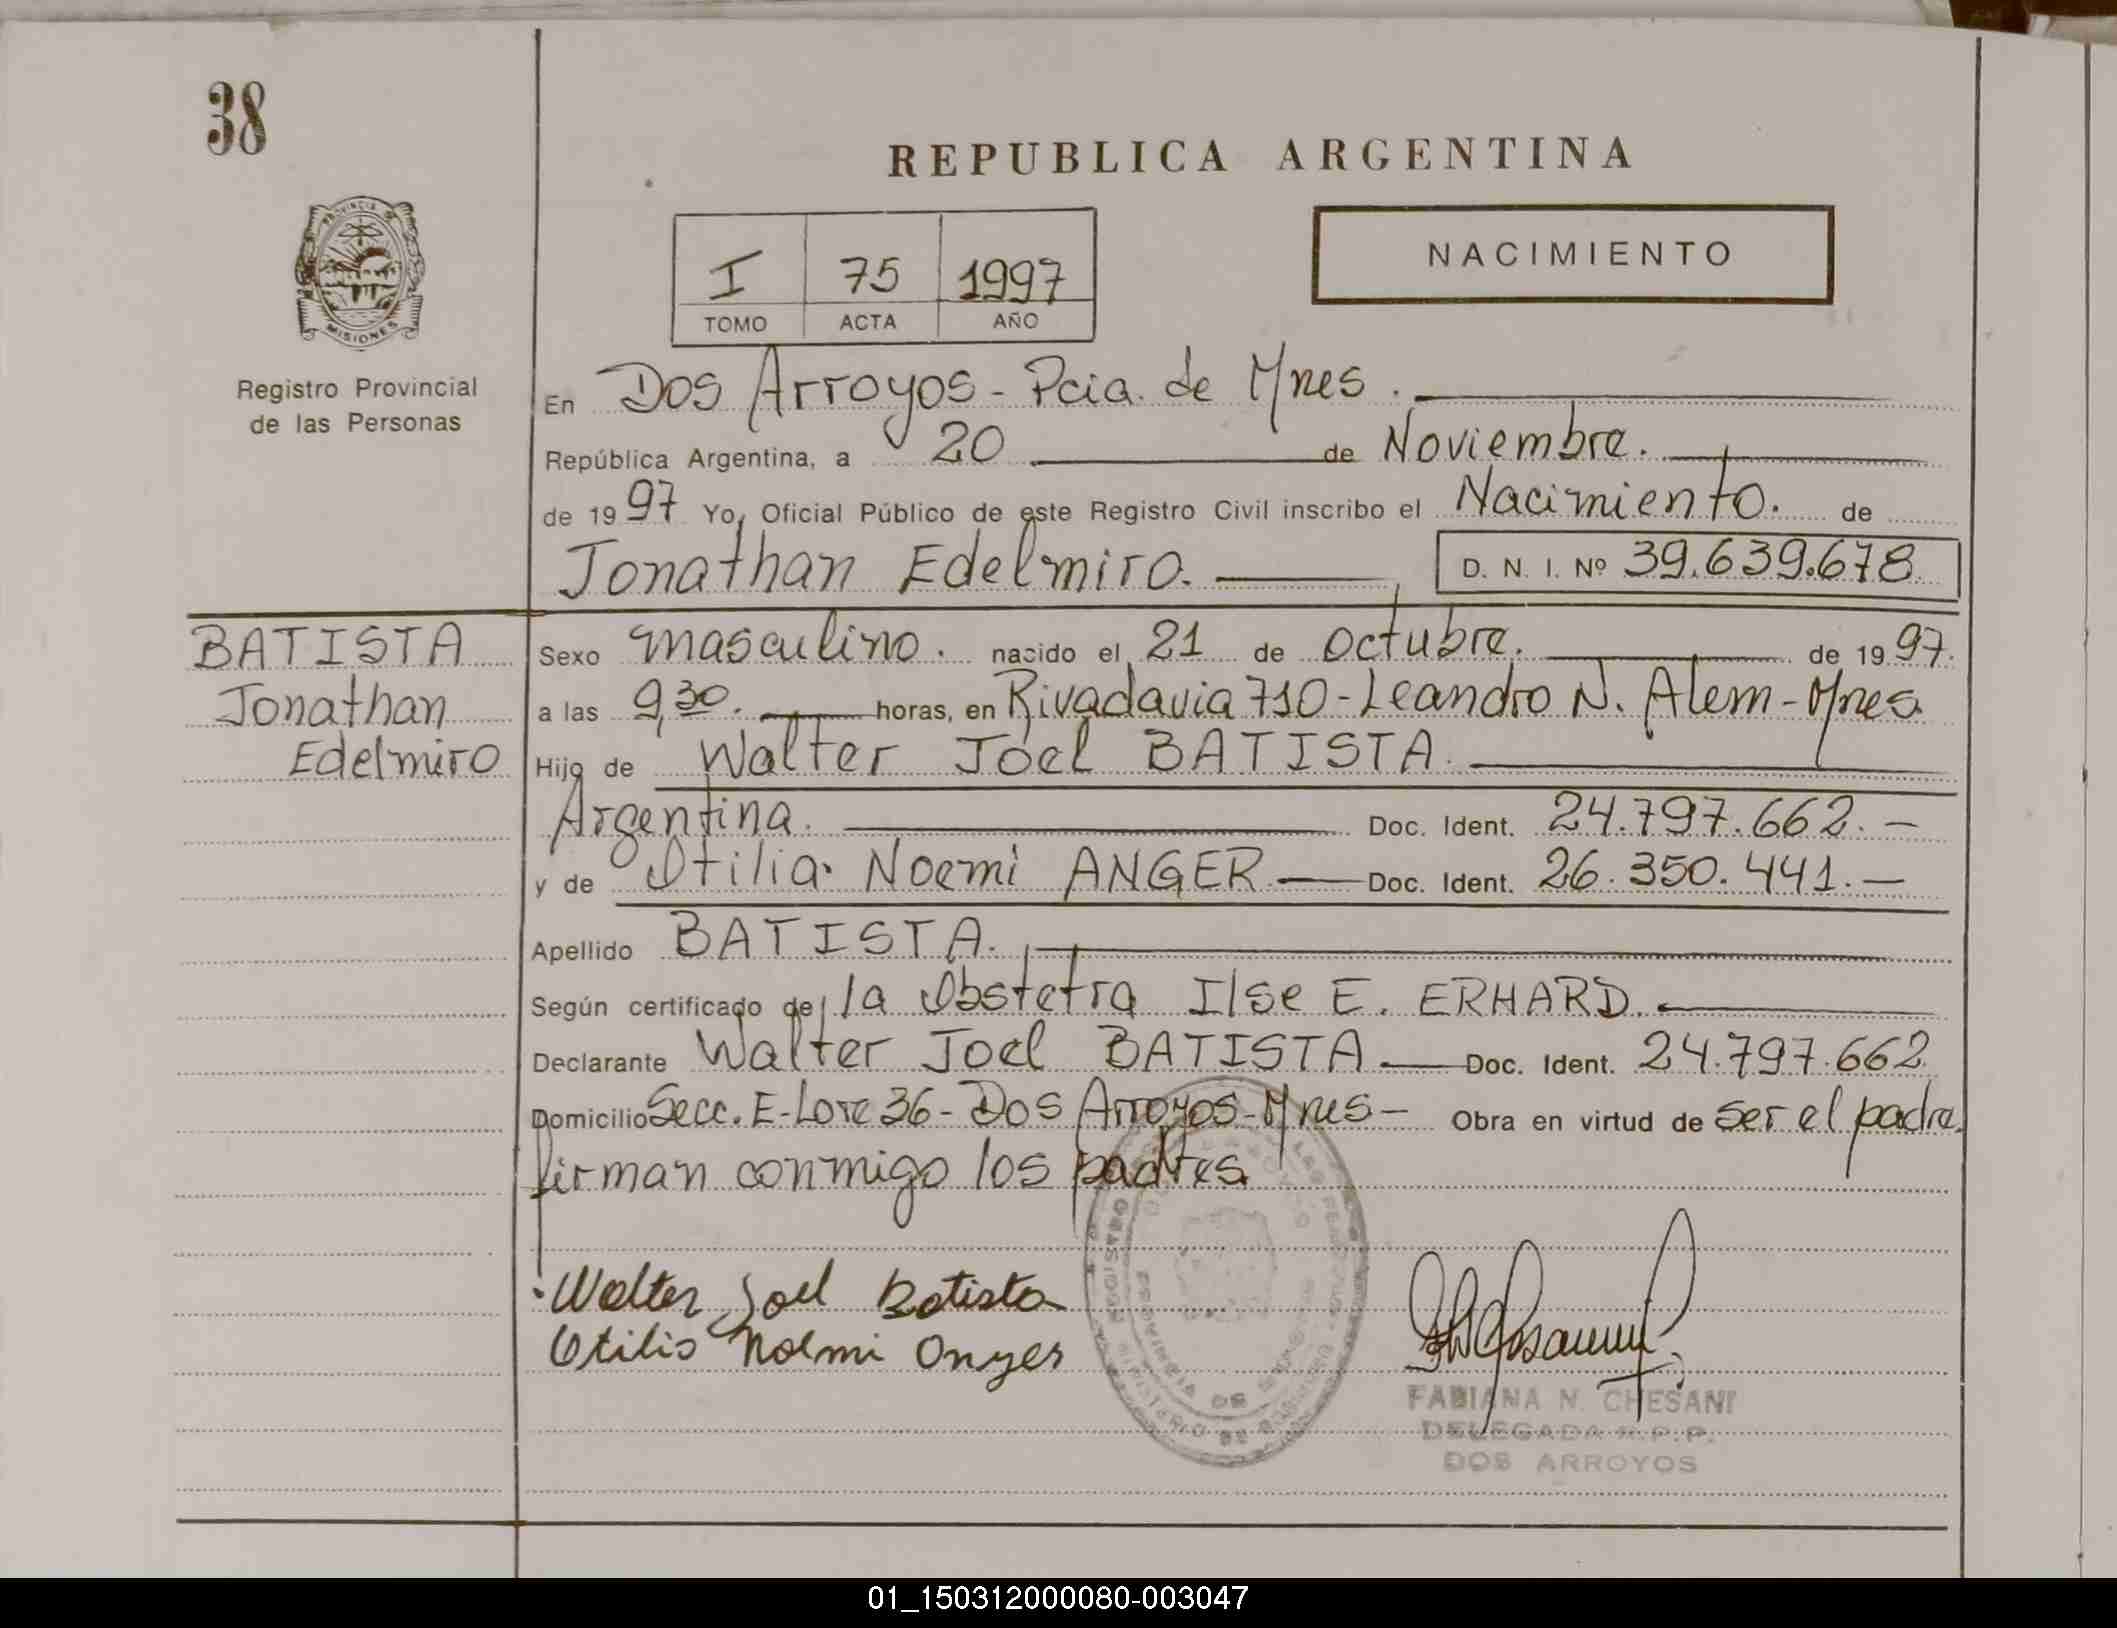 38
REPUBLICA ARGENTINA
NACIMIENTO
I 75 1997
TOMO ACTA AÑO
PROVINCIA DE
MISIONES
Registro Provincial
de las Personas
En Dos Arroyos - Pcia. de Mnes.
República Argentina, a 20 de Noviembre.
de 1997 Yo, Oficial Público de este Registro Civil inscribo el Nacimiento. de
Jonathan Edelmiro. D. N. I. Nº 39.639.678
BATISTA
Jonathan
Edelmiro
Sexo masculino. nacido el 21 de octubre. de 1997.
a las 9,30. horas, en Rivadavia 710 - Leandro N. Alem - Mnes.
Hijo de Walter Joel BATISTA.
Argentina. Doc. Ident. 24.797.662.-
y de Otilia Noemi ANGER. Doc. Ident. 26.350.441.-
Apellido BATISTA.
Según certificado de la Obstetra Ilse E. ERHARD.
Declarante Walter Joel BATISTA Doc. Ident. 24.797.662
Domicilio Secc. E - Lote 36 - Dos Arroyos - Mnes - Obra en virtud de ser el padre.
firman conmigo los padres.
Walter Joel Batista
Otilia Noemi Anger
FABIANA N. CHESANI
DELEGADA R.P.P.
DOS ARROYOS
01_150312000080-003047